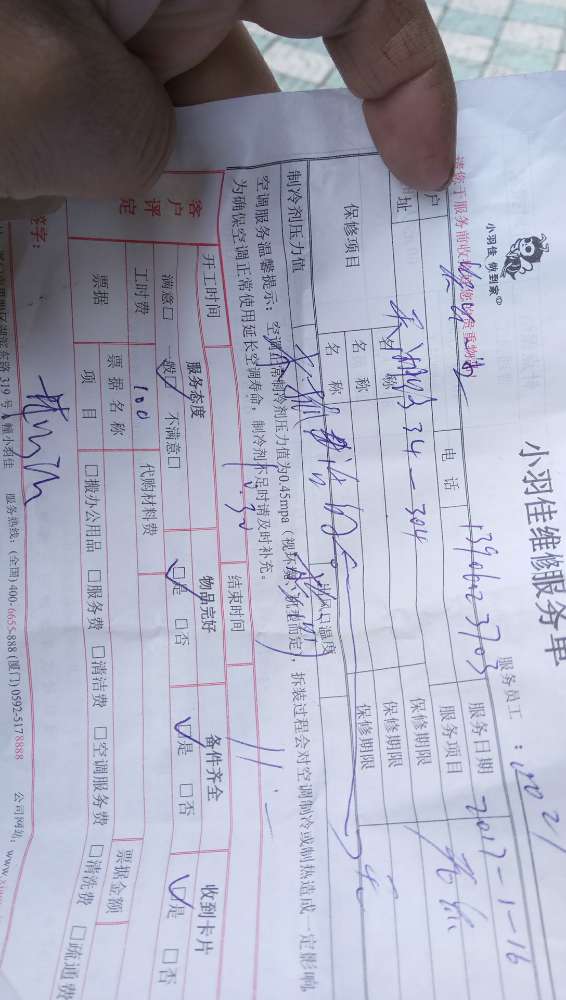 小羽佳 做到家®
小羽佳维修服务单
服务员工：
请您于服务前收
您的贵重物
户
电话
13906023703
服务日期
2017-1-16
址
34-304
服务项目
保修项目
名称
保修期限
名称
保修期限
名称
保修期限
制冷剂压力值
出风口温度
空调服务温馨提示：空调正常制冷剂压力值为0.45mpa（视环境、机型而定），拆装过程会对空调制冷或制热造成一定影响，
为确保空调正常使用延长空调寿命，制冷剂不足时请及时补充。
开工时间
10:30
结束时间
11:
客户评定
服务态度
物品完好
备件齐全
收到卡片
满意□ 一般□ 不满意□
□是 □否
□是 □否
□是 □否
工时费
100
代购材料费
票据
票据名称
票据金额
项目
□搬办公用品 □服务费 □清洁费 □空调服务费 □清洗费 □疏通费
签字：
东路319号 幢小羽佳 服务热线：(全国) 400-6655-888 (厦门) 0592-5178888 公司网站：www.